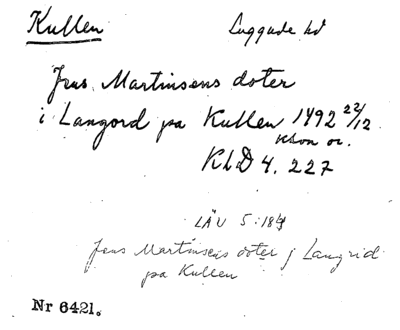 Kullen Luggude hd
Jens Martinsens doter
i Langord pa Kullen 1492 22/12
Khvn or.
KLD 4. 227
LÄU 5:184
Jens Martinsens doter j Langrid
pa Kullen
Nr 6421.